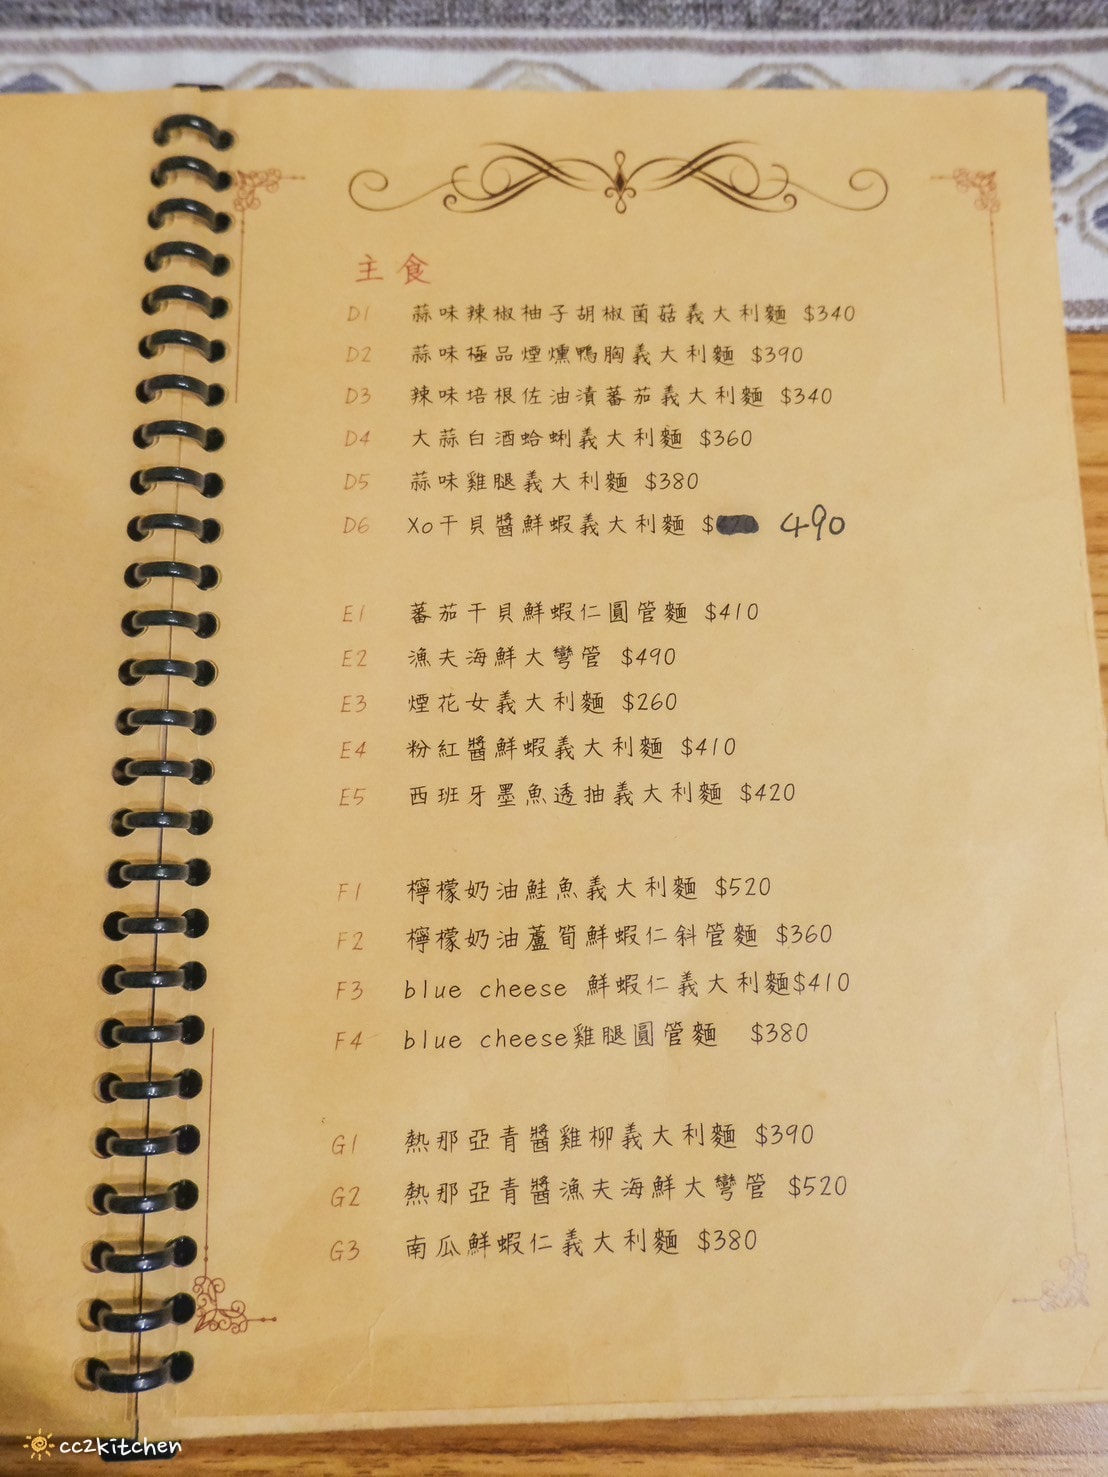 主食
D1 蒜味辣椒柚子胡椒菌菇義大利麵 $340
D2 蒜味極品煙燻鴨胸義大利麵 $390
D3 辣味培根佐油漬蕃茄義大利麵 $340
D4 大蒜白酒蛤蜊義大利麵 $360
D5 蒜味雞腿義大利麵 $380
D6 Xo干貝醬鮮蝦義大利麵 $ 490
E1 蕃茄干貝鮮蝦仁圓管麵 $410
E2 漁夫海鮮大彎管 $490
E3 煙花女義大利麵 $260
E4 粉紅醬鮮蝦義大利麵 $410
E5 西班牙墨魚透抽義大利麵 $420
F1 檸檬奶油鮭魚義大利麵 $520
F2 檸檬奶油蘆筍鮮蝦仁斜管麵 $360
F3 blue cheese 鮮蝦仁義大利麵$410
F4 blue cheese雞腿圓管麵 $380
G1 熱那亞青醬雞柳義大利麵 $390
G2 熱那亞青醬漁夫海鮮大彎管 $520
G3 南瓜鮮蝦仁義大利麵 $380
cc2kitchen